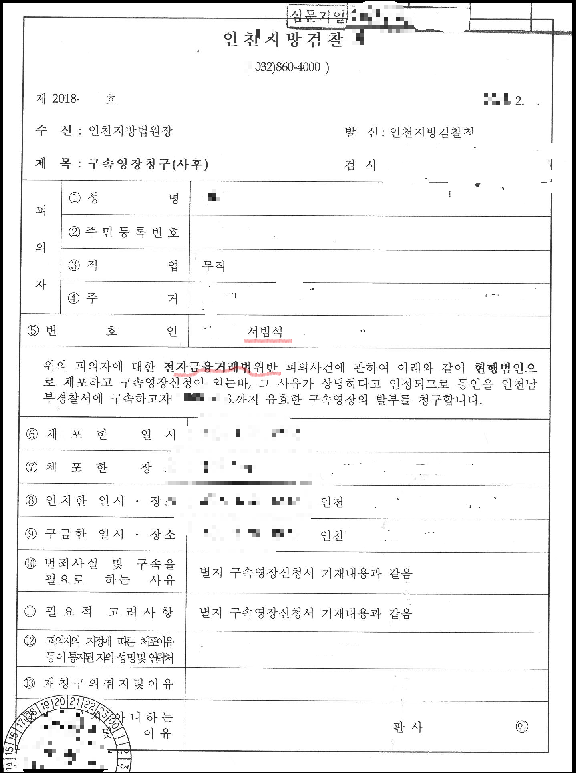 심문기일
인천지방검찰
032)860-4000 )
제 2018-    호
2.
수 신 : 인천지방법원장
발 신 : 인천지방검찰청
제 목 : 구속영장청구(사후)
검 사
피의자
① 성 명
② 주민등록번호
③ 직 업 무직
④ 주 거
⑤ 변 호 인 서범석
위의 피의자에 대한 전자금융거래법위반 피의사건에 관하여 아래와 같이 현행범인으
로 체포하고 구속영장신청이 있는바, 그 사유가 상당하다고 인정되므로 동인을 인천남
부경찰서에 구속하고자 3.까지 유효한 구속영장의 발부를 청구합니다.
⑥ 체 포 한 일 시
⑦ 체 포 한 장
⑧ 인치한 일시 · 장소 인천
⑨ 구금한 일시 · 장소 인천
⑩ 범죄사실 및 구속을
필요로 하는 사유
별지 구속영장신청서 기재내용과 같음
필요적 고려사항 별지 구속영장신청서 기재내용과 같음
⑫ 피의자의 지정에 따른 체포이유
등이 통지된 자의 성명 및 연락처
⑬ 재청구의 취지 및 이유
아니하는
및 이유
판 사 ㊞